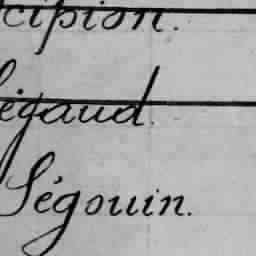 cipion.
égaud.
Ségouin.